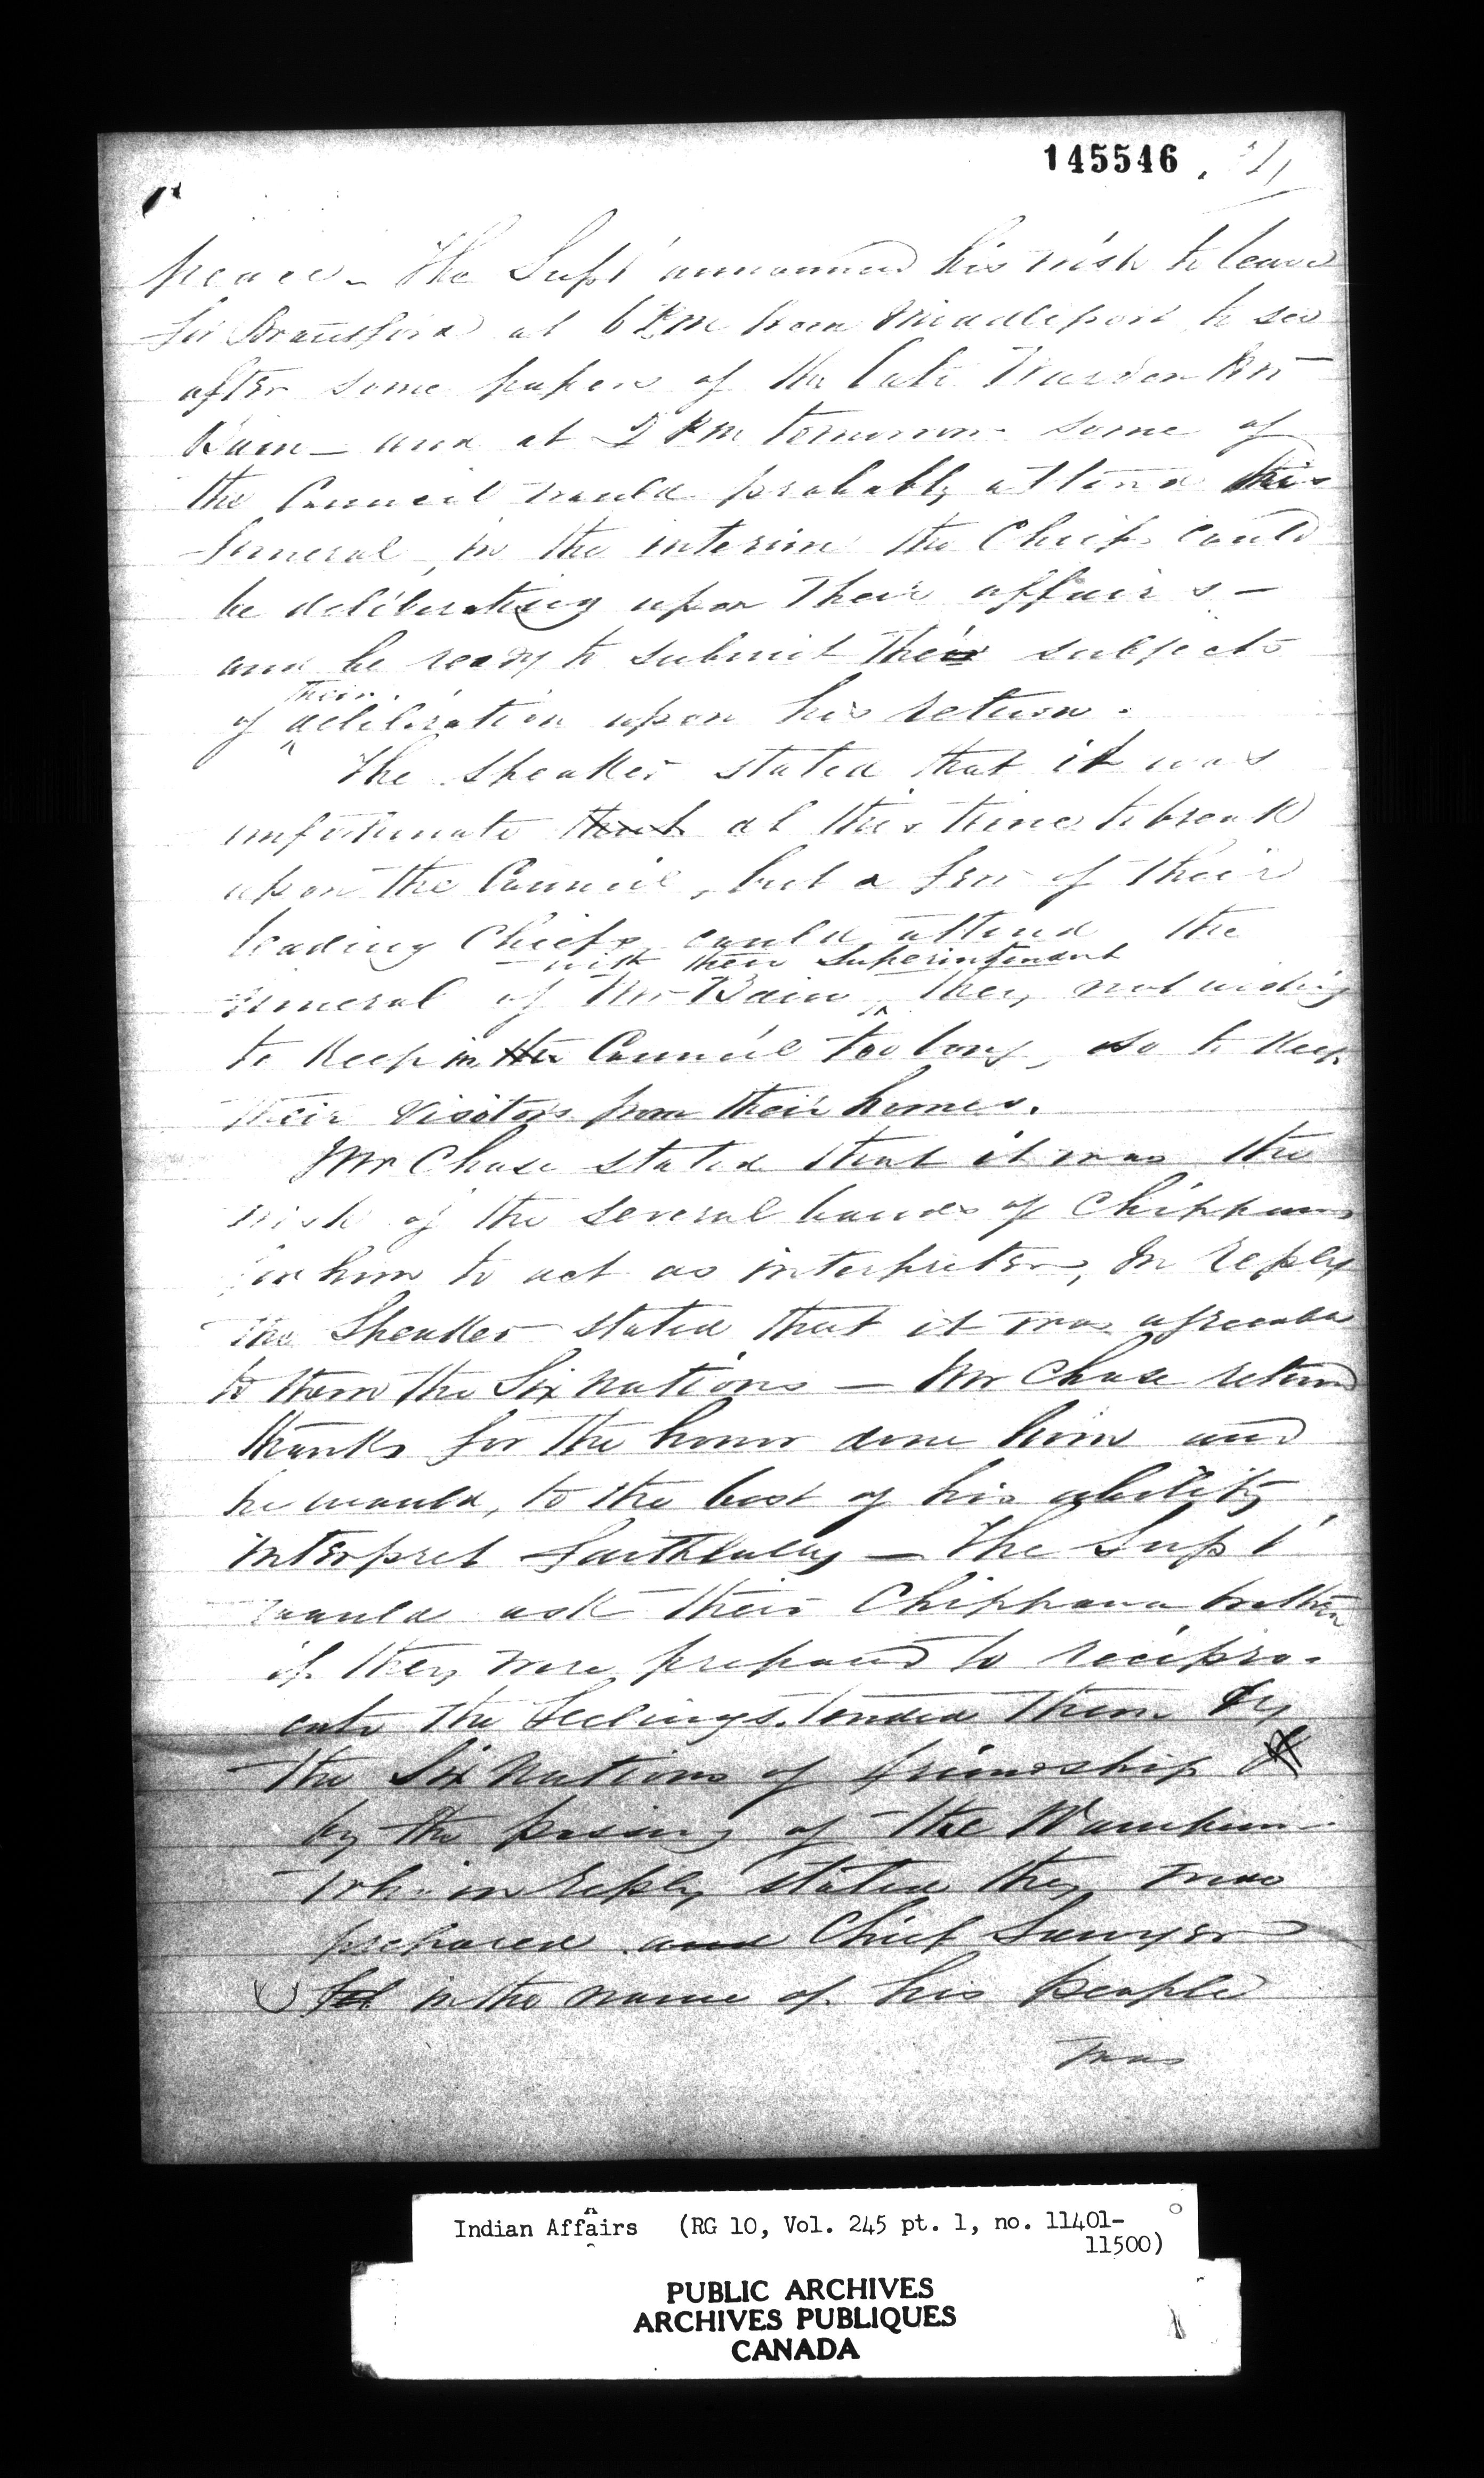 145546
peace – The Supt announced his wish to leave
for Brantford at 6 P.M from Middleport to see
after some papers of the late Warden Mr
Bain – and at 2 PM tomorrow some of
the Council would probably attend his
funeral, in the interim the Chiefs could
be deliberating upon their affairs –
and be ready to submit the subjects
their
of deliberation upon his return.
The Speaker stated that it was
unfortunate that at this time to break
upon the Council, but a few of their
leading Chiefs could attend the
with their Superintendent
funeral of Mr Bain they not wishing
to keep in the Council too long, so to keep
their visitors from their homes.
Mr Chase stated that it was the
wish of the several bands of Chippawas
for him to act as interpreter, In reply
the Speaker stated that it was agreeable
to them the Six Nations – Mr Chase returned
thanks for the honor done him and
he would, to the best of his ability,
interpret faithfully – The Supt
would ask their Chippawa brethren
if they were prepared to recipro-
cate the feelings tended them by
the Six Nations of friendship
by the passing of the Wampum
who in reply stated they was
prepared and Chief Sawyer
in the name of his people
was
Indian Affairs (RG 10, Vol. 245 pt. 1, no. 11401-
11500)
PUBLIC ARCHIVES
ARCHIVES PUBLIQUES
CANADA